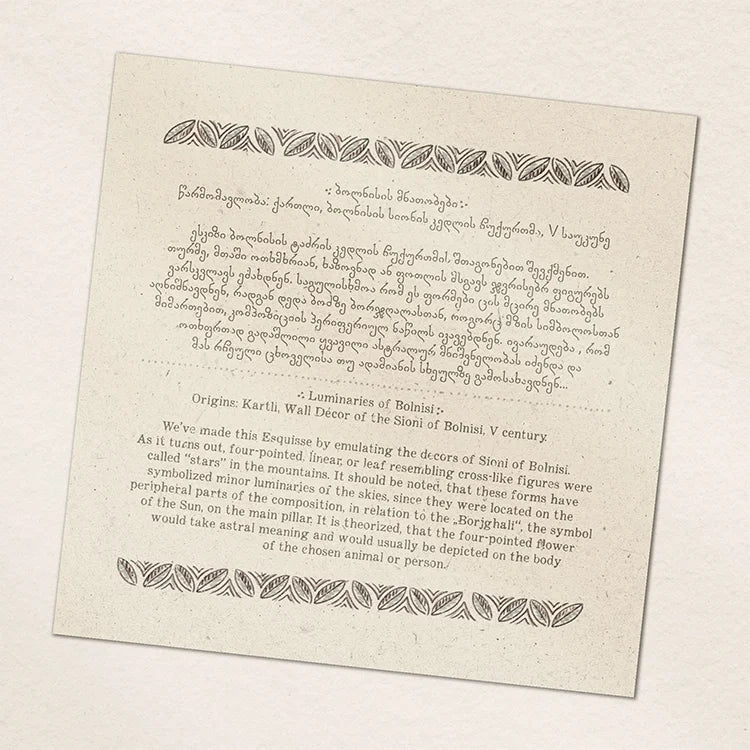 ∴ ბოლნისის მნათობები ∴
წარმომავლობა: ქართლი, ბოლნისის სიონის კედლის ჩუქურთმა, V საუკუნე
ესკიზი ბოლნისის ტაძრის კედლის ჩუქურთმის, შთაგონებით შევქმენით.
თურმე, მთაში ოთხმხრიან, ხაზოვნად ან ფოთლის მსგავს ჯვრისებრ ფიგურებს
ვარსკვლავს ეძახდნენ. საგულისხმოა რომ ეს ფორმები ცის მცირე მნათობებს
აღნიშნავდნენ, რადგან დედა ბოძზე ბორჯღალასთან, როგორც მზის სიმბოლოსთან
მიმართებით, კომპოზიციის პერიფერიულ ნაწილს იკავებდნენ. ივარაუდება , რომ
ოთხფრთად გადაშლილი ყვავილი ასტრალურ მნიშვნელობას იძენდა და
მას რჩეული ცხოველისა თუ ადამიანის სხეულზე გამოსახავდნენ...
∴ Luminaries of Bolnisi ∴
Origins: Kartli, Wall Décor of the Sioni of Bolnisi, V century.
We've made this Esquisse by emulating the decors of Sioni of Bolnisi.
As it turns out, four-pointed, linear, or leaf resembling cross-like figures were
called "stars" in the mountains. It should be noted, that these forms have
symbolized minor luminaries of the skies, since they were located on the
peripheral parts of the composition, in relation to the „Borjghali“, the symbol
of the Sun, on the main pillar. It is theorized, that the four-pointed flower
would take astral meaning and would usually be depicted on the body
of the chosen animal or person.